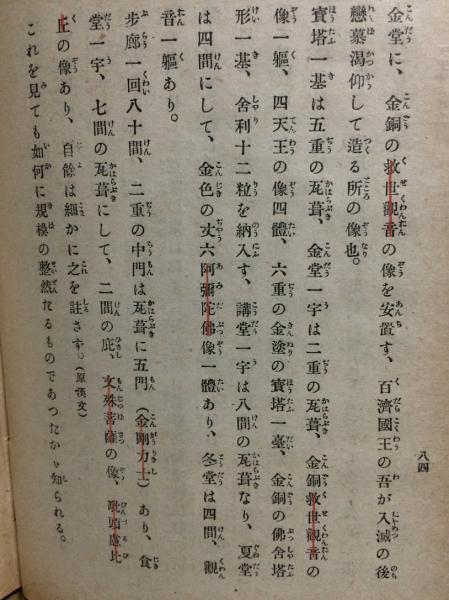 金堂に、金銅の救世觀音の像を安置す、百濟國王の吾が入滅の後
戀慕渇仰して造る所の像也。
寳塔一基は五重の瓦葺、金堂一宇は二重の瓦葺、金銅救世觀音の
像一軀、四天王の像四體、六重の金塗の寳塔一臺、金銅の佛舍塔
形一基、舍利十二粒を納入す、講堂一宇は八間の瓦葺なり、夏堂
は四間にして、金色の丈六阿彌陀佛像一體あり、冬堂は四間、觀
音一軀あり。
步廊一回八十間、二重の中門は瓦葺に五門（金剛力士）あり、食
堂一宇、七間の瓦葺にして、二間の庇、文殊菩薩の像、毗頭盧比
丘の像あり、自餘は細かに之を註さず。（原漢文）
これを見ても如何に規模の整然たるものであつたかゞ知られる。
八四